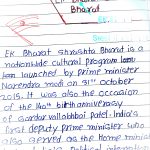 Ek Bharat
Bharat
Ek Bharat Shrashta Bharat is a
nationwide cultural program
lan launched by prime minister
Narendra modi on 31st October
2015. It was also the occasion
of the 140th birth anniversary
of Sardar vallabhbai patel. India's
first deputy prime minister who
also served as the Home minist